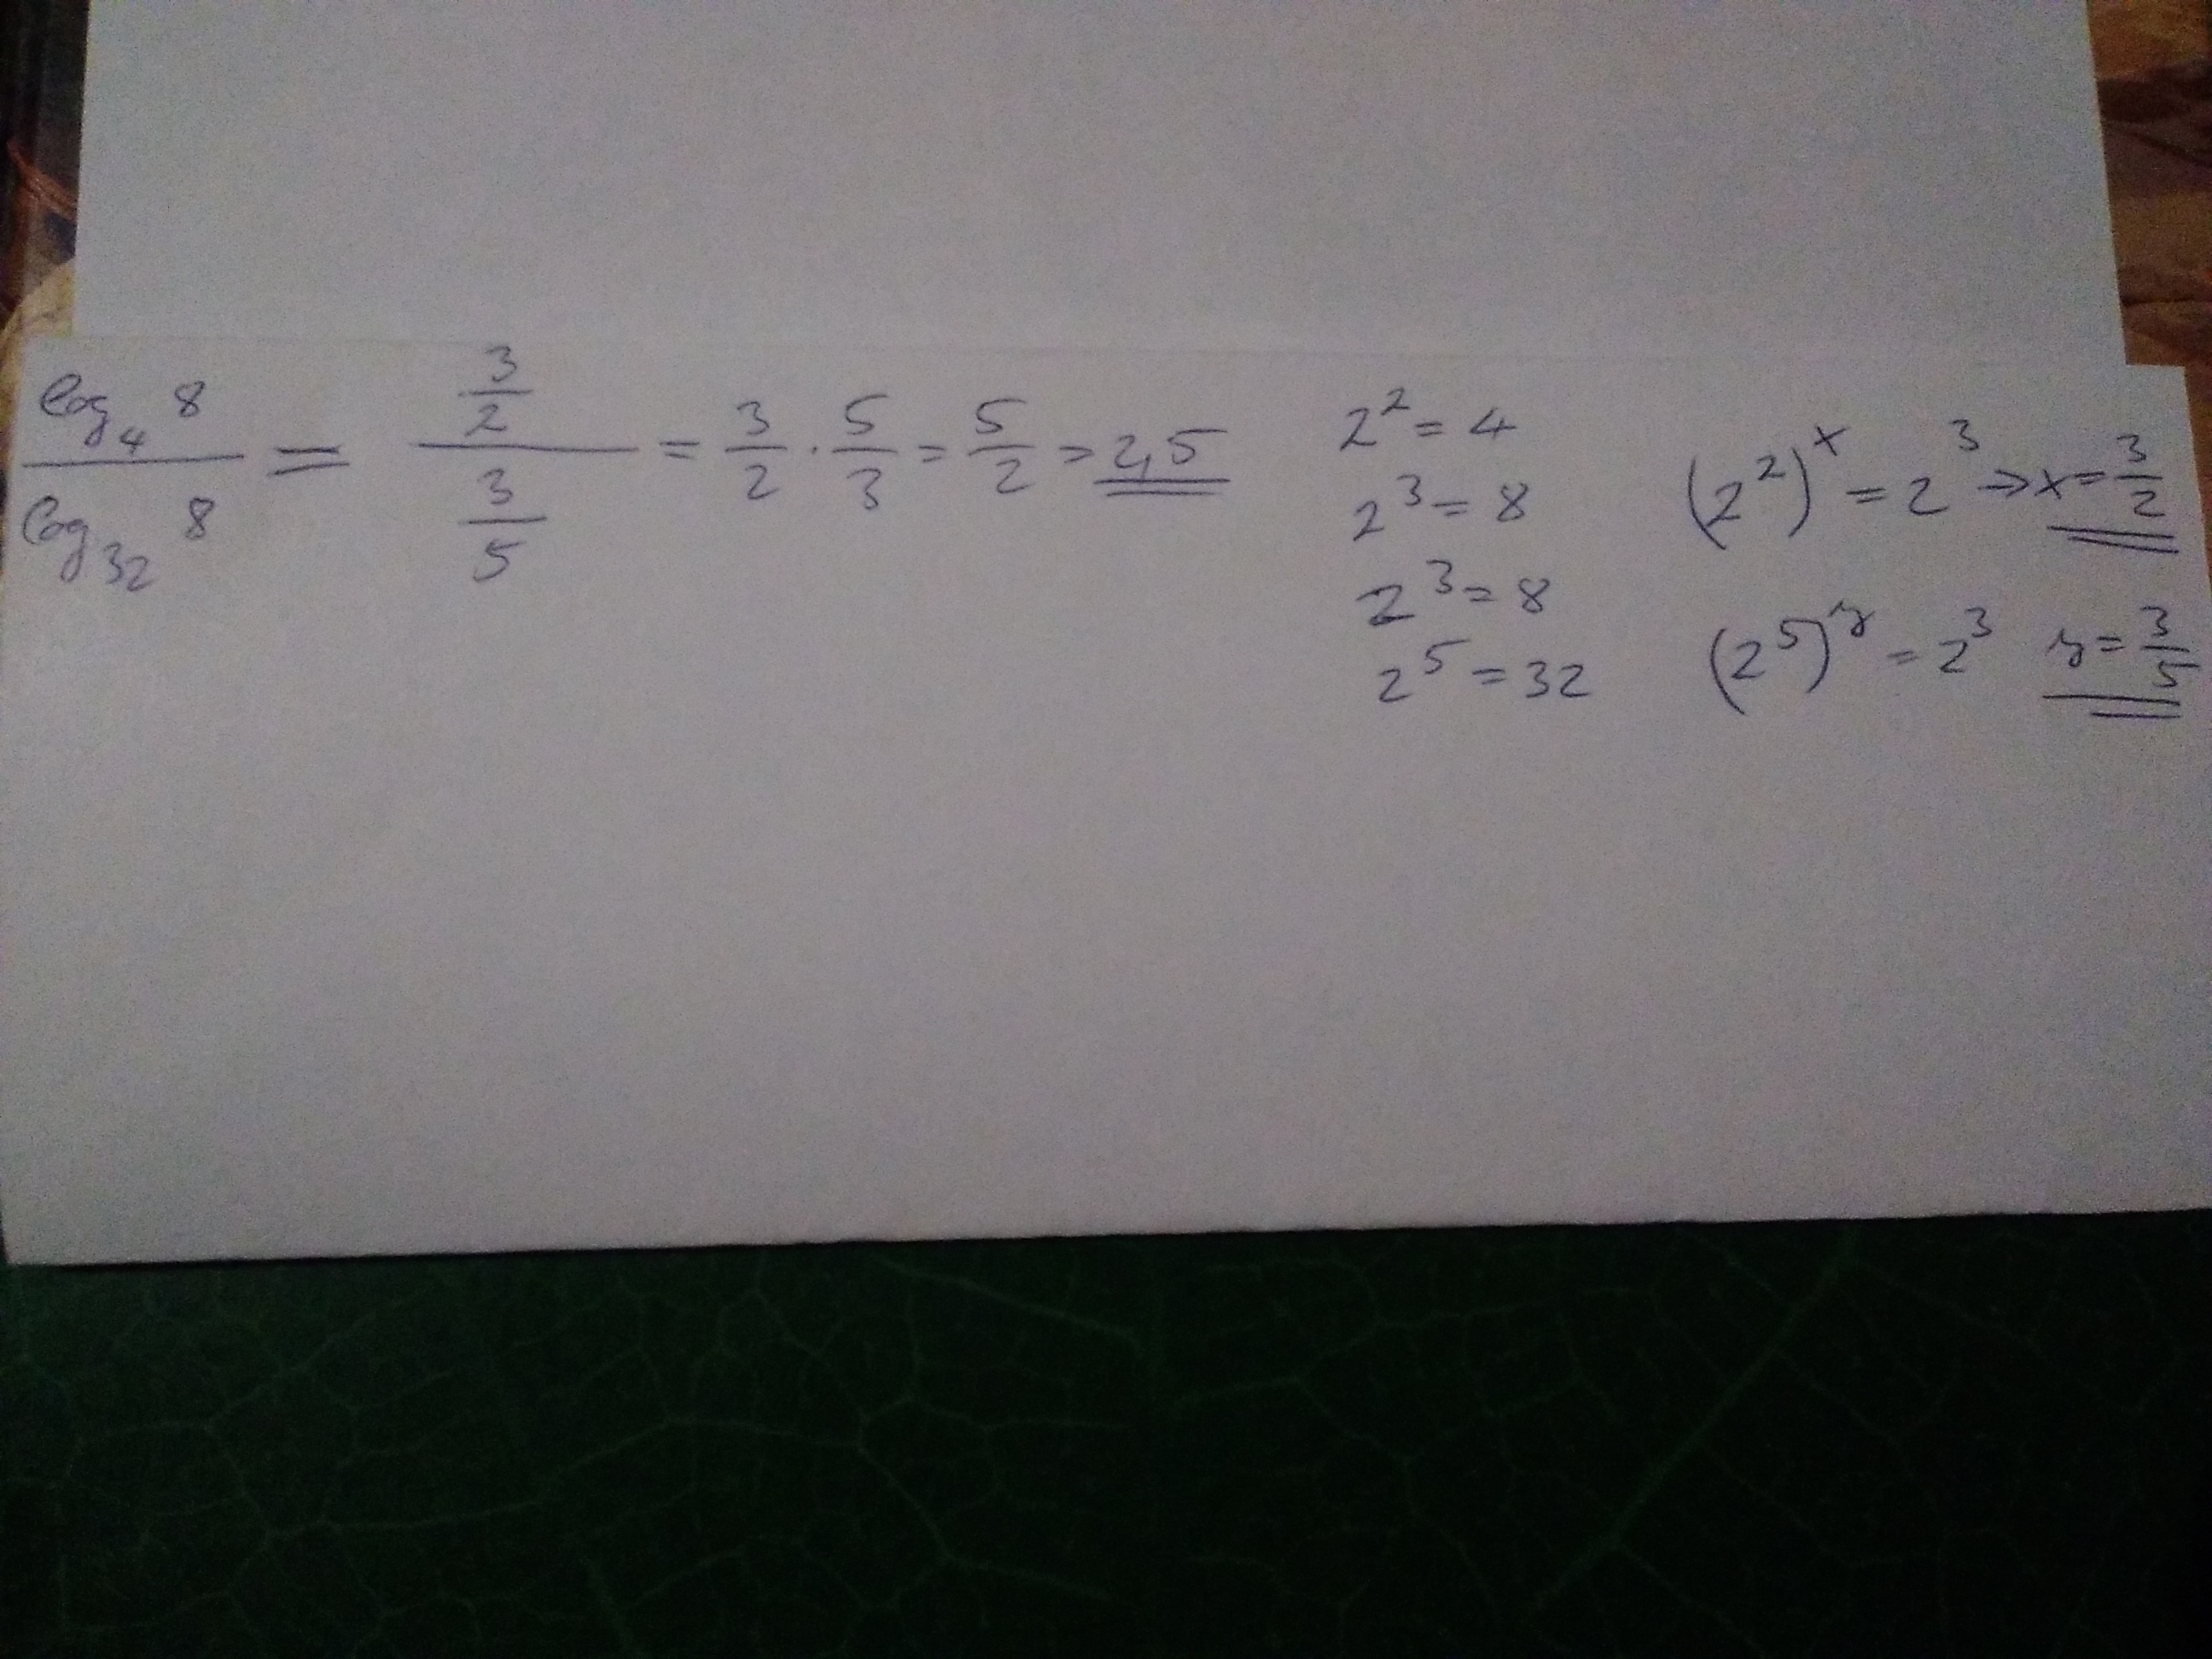 log₄ 8 / log₃₂ 8 = (3/2) / (3/5) = 3/2 · 5/3 = 5/2 = 2,5
2² = 4
2³ = 8
2³ = 8
2⁵ = 32
(2²)ˣ = 2³ → x = 3/2
(2⁵)ʸ = 2³ y = 3/5